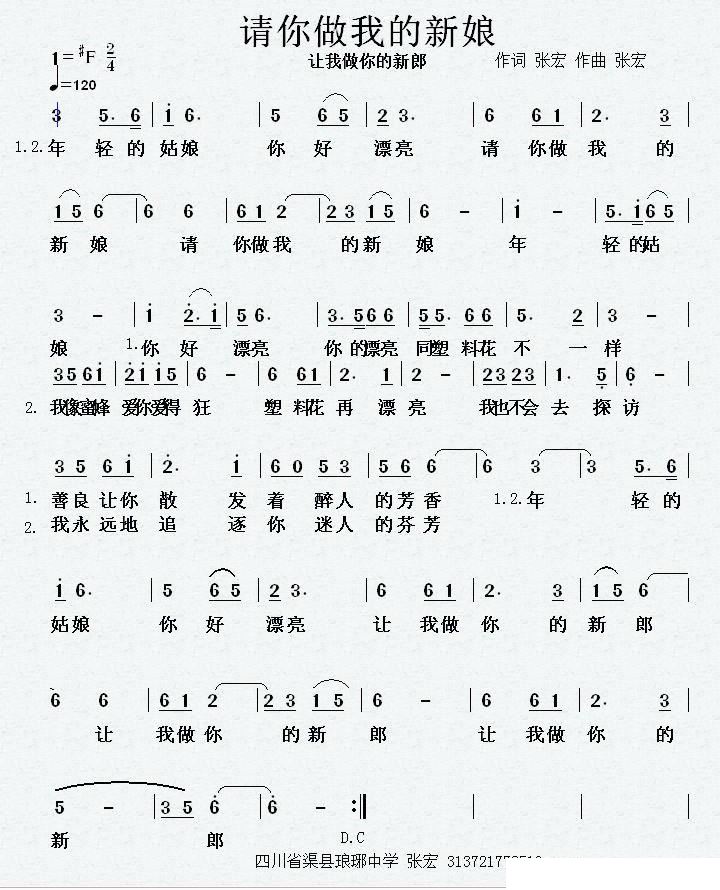 请你做我的新娘
1=#F 2/4
让我做你的新郎 作词 张宏 作曲 张宏
♩=120
3 5. 6 | i 6. | 5 6 5 | 2 3. | 6 6 1 | 2. 3 |
1.2. 年 轻的 姑娘 你 好 漂亮 请 你做 我 的
1 5 6 | 6 6 | 6 1 2 | 2 3 1 5 | 6 – | i – | 5. i 6 5 |
新 娘 请 你做我 的新 娘 年 轻的姑
3 – | i 2. i | 5 6. | 3. 5 6 6 | 5 5. 6 6 | 5. 2 | 3 – |
娘 1. 你 好 漂亮 你的漂亮 同塑料花 不 一 样
3 5 6 i | 2 i i 5 | 6 – | 6 6 1 | 2. 1 | 2 – | 2 3 2 3 | 1. 5 | 6 – |
2. 我像蜜蜂 爱你爱得 狂 塑 料花 再 漂 亮 我也不会 去 探 访
3 5 6 i | 2. i | 6 0 5 3 | 5 6 6 | 6 3 | 3 5. 6 |
1. 善良让你 散 发 着 醉人 的芳香 1.2. 年 轻的
2. 我永远地 追 逐 你 迷人 的芬芳
i 6. | 5 6 5 | 2 3. | 6 6 1 | 2. 3 | 1 5 6 |
姑娘 你 好 漂亮 让 我做 你 的 新 郎
6 6 | 6 1 2 | 2 3 1 5 | 6 – | 6 6 1 | 2. 3 |
让 我做你 的新 郎 让 我做 你 的
5 – | 3 5 6 | 6 – :|
新 郎 D.C
四川省渠县琅琊中学 张宏